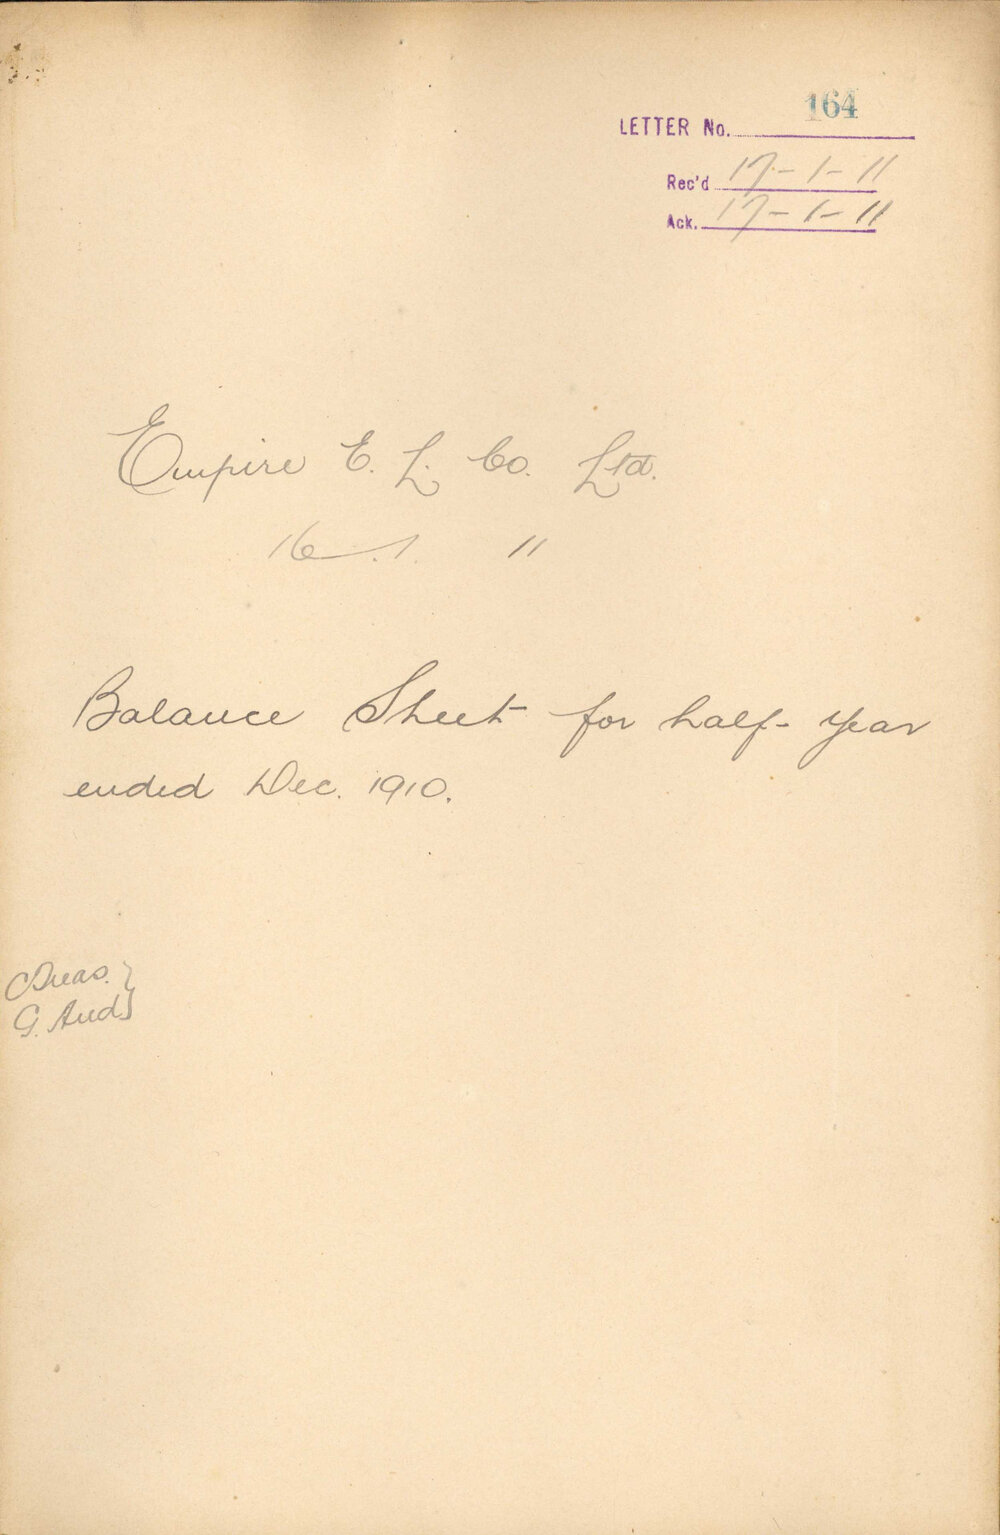 164
LETTER No.
Rec'd 17-1-11
Ack. 17-1-11
Empire E. L. Co. Ltd.
16.1. 11
Balance Sheet for half-year
ended Dec. 1910.
Treas. }
G. Aud }